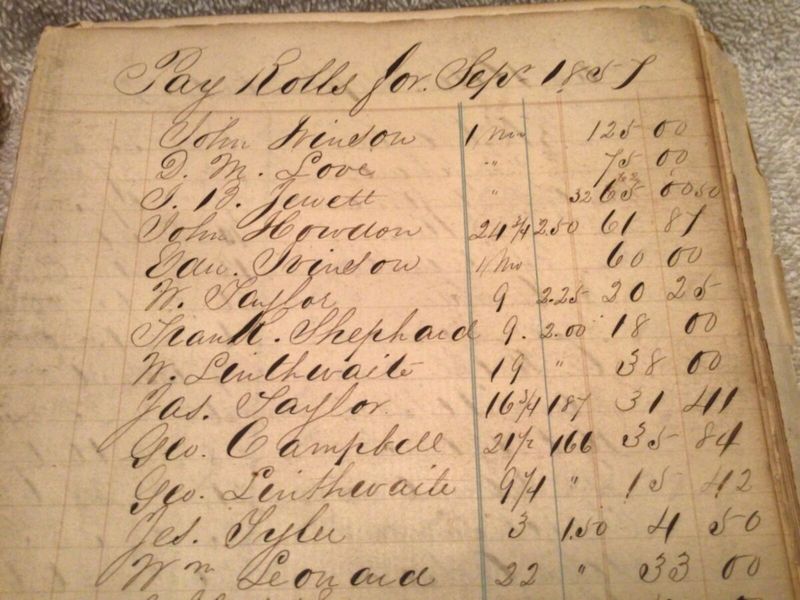 Pay Rolls for. Sepr 1857
John Ivinson 1 Mo 125 00
D. M. Love " 75 00
J. B. Jewett " 32 65 00 50
John Howdon 24 3/4 2.50 61 87
Edw. Ivinson 1 Mo 60 00
W. Taylor 9 2.25 20 25
Frank. Shephard 9. 2.00 18 00
W. Linthwaite 19 " 38 00
Jas. Taylor 16 3/4 187 31 41
Geo. Campbell 21 1/2 166 35 84
Geo. Linthwaite 9 1/4 " 15 42
Jes. Tyler 3 1.50 4 50
Wm Leonard 22 " 33 00